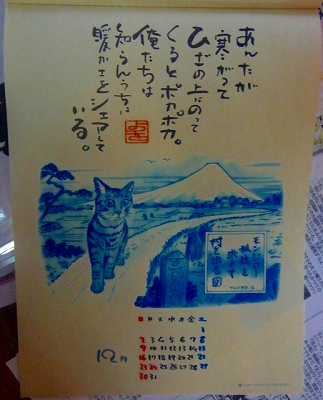 あんたが
寒がって
ひざの上にのって
くるとポカポカ。
俺たちは
知らんうちに
暖かさをシェアして
いる。
日 月 火 水 木 金 土
1
2 3 4 5 6 7 8
9 10 11 12 13 14 15
16 17 18 19 20 21 22
23 24 25 26 27 28 29
30 31
12月